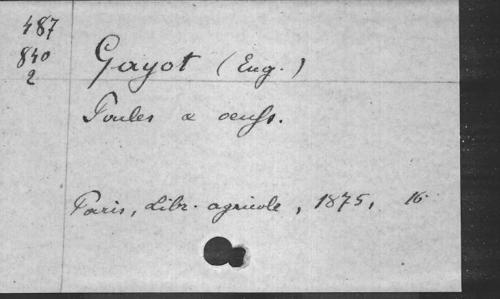 487
840
2
Gayot (Eug.)
Poules & oeufs.
Paris, Libr. agricole, 1875, 16